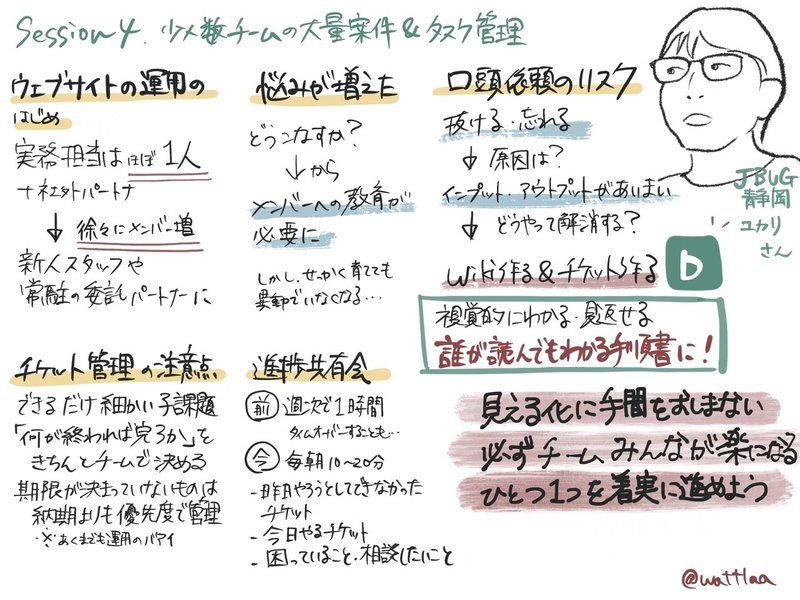 Session 4. 少人数チームの大量案件&タスク管理
ウェブサイトの運用の
はじめ
実務担当はほぼ1人
+社外パートナ
↓ 徐々にメンバー増
新人スタッフや
常駐の委託パートナーに
悩みが増えた
どうこなすか?
↓から
メンバーへの教育が
必要に
しかし、せっかく育てても
異動でいなくなる…
口頭依頼のリスク
抜ける・忘れる
↓ 原因は?
インプット・アウトプットがあいまい
↓ どうやって解消する?
Wiki作る&チケット作る
b
視覚的にわかる・見返せる
誰が読んでもわかる手順書に!
JBUG
静岡
ユカリ
さん
チケット管理の注意点
できるだけ細かい子課題
「何が終われば完了か」を
きちんとチームで決める
期限が決まっていないものは
納期よりも優先度で管理
※あくまでも運用のバアイ
進捗共有会
前 週次で1時間
タイムオーバーすることも…
今 毎朝10~20分
- 昨日やろうとしてできなかった
チケット
- 今日やるチケット
- 困っていること・相談したいこと
見える化に手間をおしまない
必ずチームみんなが楽になる
ひとつ1つを着実に進めよう
@wattaa